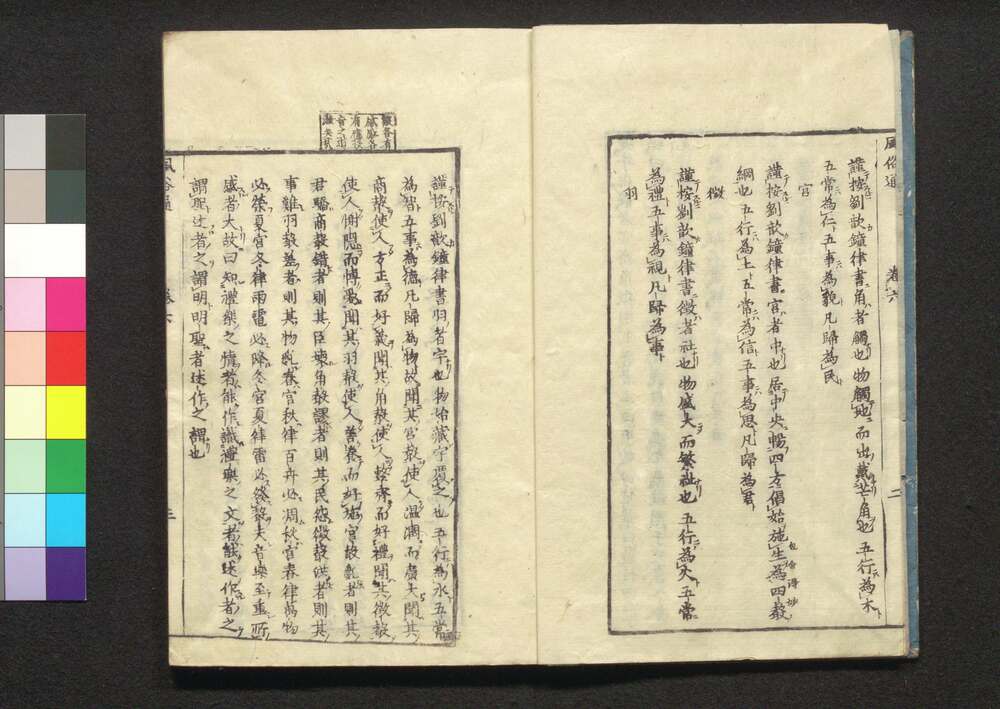 風俗通 卷六 二
謹按劉歆鐘律書角者觸也物觸地而出戴芒角也五行為木
五常為仁五事為貌凡歸為民
宮
謹按劉歆鐘律書宮者中也居中央暢四方倡始施生為四聲
綱也五行為土五常為信五事為思凡歸為君
徵
謹按劉歆鐘律書徵者祉也物盛大而繁祉也五行為火五常
為禮五事為視凡歸為事
羽
謹按劉歆鐘律書羽者宇也物始藏宇覆之也五行為水五常
為智五事為德凡歸為物故聞其宮聲使人溫潤而廣大聞其
商聲使人方正而好義聞其角聲使人整齊而好禮聞其徵聲
使人惻隱而博愛聞其羽聲使人善養而好施宮聲亂者則其
君驕商聲錯者則其臣壞角聲謬者則其民怨徵聲洪者則其
事難羽聲差者則其物亂春宮秋律百卉必凋秋宮春律萬物
必榮夏宮冬律雨雹必降冬宮夏律雷必發聲夫音樂至重所
感者大故曰知禮樂之情者能作識禮樂之文者能述作者之
謂聖述者之謂明明聖者述作之謂也
風俗通 卷六 三